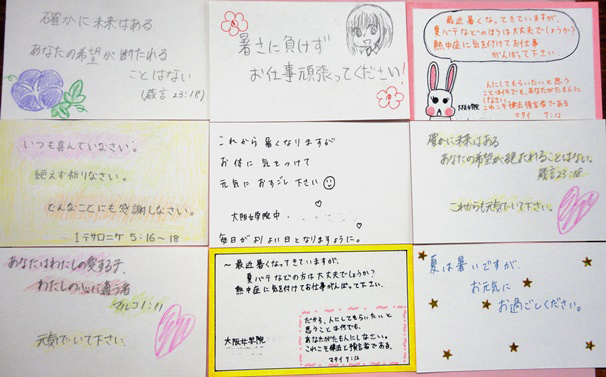 確かに未来はある
あなたの希望が断たれる
ことはない
(箴言 23:18)
暑さに負けず
お仕事頑張ってください!
最近暑くなってきていますが、
夏バテなどのほうは大丈夫でしょうか?
熱中症に気を付けてお仕事
がんばって下さい
人にしてもらいたいと思う
ことは何でも、あなたがたも人に
しなさい。
これこそ律法と預言者である
マタイ 7:12
大阪女学院
いつも喜んでいなさい。
絶えず祈りなさい。
どんなことにも感謝しなさい。
Iテサロニケ 5:16~18
これから暑くなりますが
お体に気をつけて
元気におすごし下さい
大阪女学院中
毎日がよい日となりますように。
確かに未来はある
あなたの希望が絶たれることはない。
箴言23:18
これからも元気でいて下さい。
あなたはわたしの愛する子、
わたしの心に適う者
マルコ1:11
元気でいて下さい。
~最近暑くなってきていますが、
夏バテなどの方は大丈夫でしょうか?
熱中症に気を付けてお仕事がんばって下さい。
大阪女学院
だから、人にしてもらいたいと
思うことは何でも、
あなたがたも人にしなさい。
これこそ律法と預言者である。
マタイ 7:12
夏は暑いですが、
お元気に
お過ごしください。